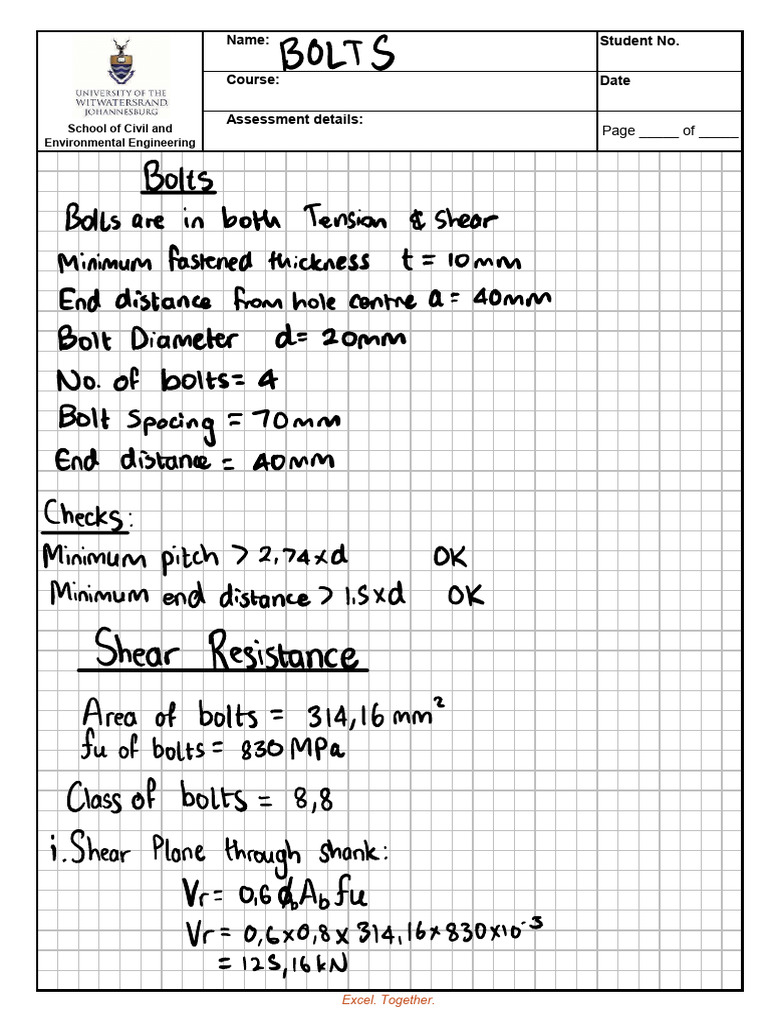 Name: BOLTS
Student No.
UNIVERSITY OF THE
WITWATERSRAND,
JOHANNESBURG
School of Civil and
Environmental Engineering
Course:
Date
Assessment details:
Page _____ of _____
Bolts
Bolts are in both Tension & shear
Minimum fastened thickness t = 10mm
End distance from hole centre a = 40mm
Bolt Diameter d= 20mm
No. of bolts= 4
Bolt Spacing = 70mm
End distance = 40mm
Checks:
Minimum pitch > 2,74xd OK
Minimum end distance > 1.5xd OK
Shear Resistance
Area of bolts = 314,16 mm²
fu of bolts = 830 MPa
Class of bolts = 8,8
i. Shear Plane through shank:
Vr = 0,6 ϕb Ab fu
Vr = 0,6x0,8x 314,16x830x10⁻³
= 125,16kN
Excel. Together.